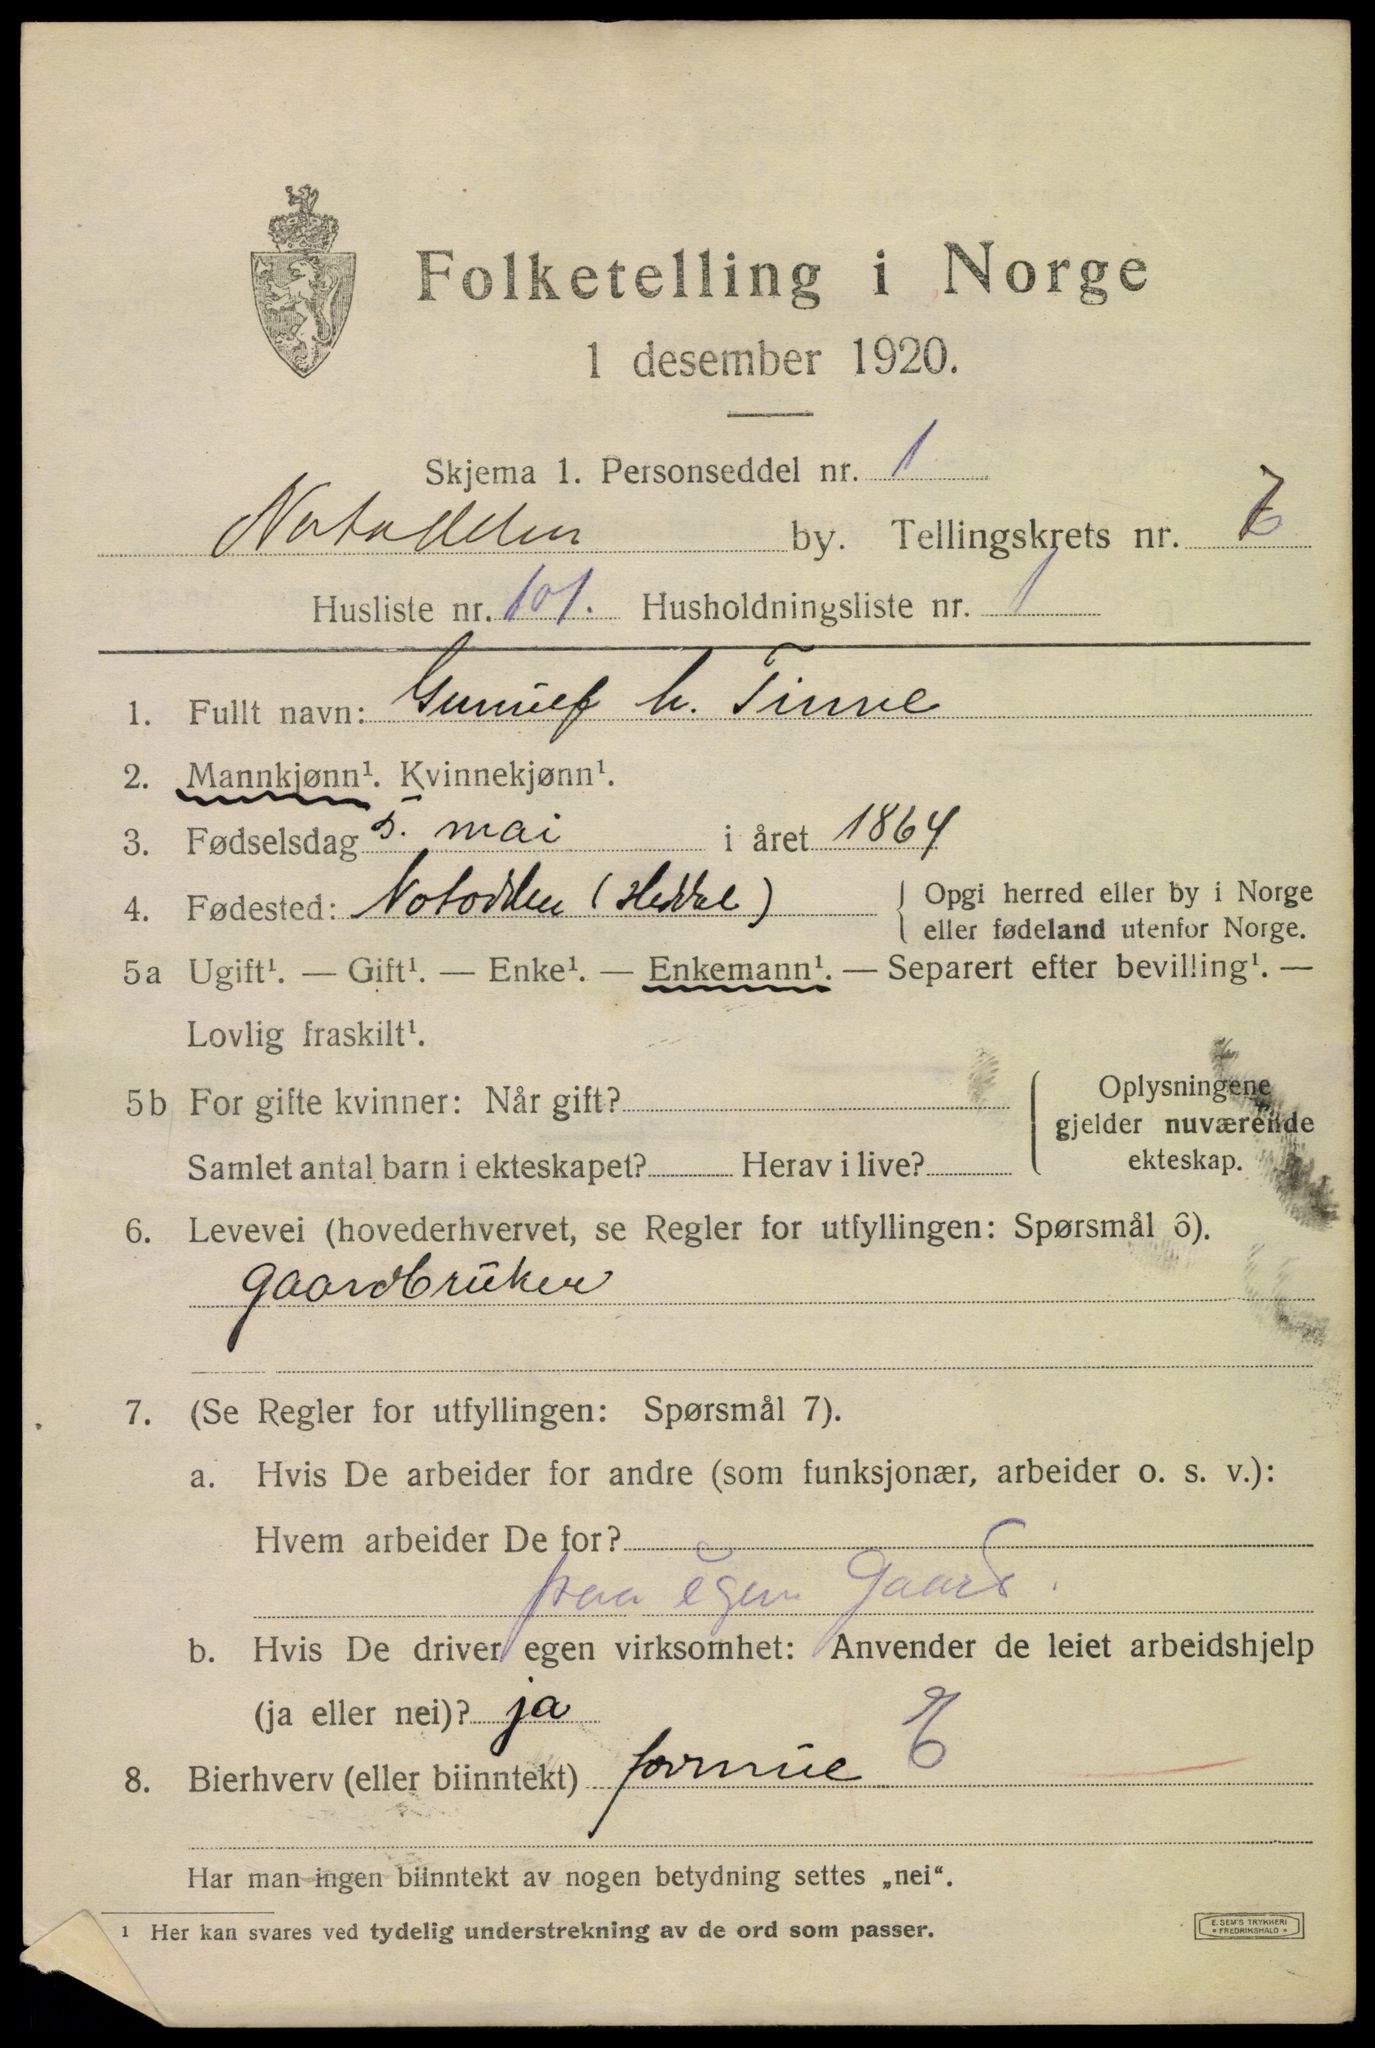 Folketelling i Norge
1 desember 1920.
Skjema 1. Personseddel nr. 1
Notodden by. Tellingskrets nr.
Husliste nr. 101. Husholdningsliste nr. 1
1. Fullt navn: Gunulf h. Tinne
2. Mannkjønn¹. Kvinnekjønn¹.
3. Fødselsdag 5. mai i året 1864
4. Fødested: Notodden (Heddal) { Opgi herred eller by i Norge
eller fødeland utenfor Norge.
5a Ugift¹. — Gift¹. — Enke¹. — Enkemann¹. — Separert efter bevilling¹. —
Lovlig fraskilt¹.
5b For gifte kvinner: Når gift?
Samlet antal barn i ekteskapet? Herav i live?
{ Oplysningene
gjelder nuværende
ekteskap.
6. Levevei (hovederhvervet, se Regler for utfyllingen: Spørsmål 6).
Gaardbrüker
7. (Se Regler for utfyllingen: Spørsmål 7).
a. Hvis De arbeider for andre (som funksjonær, arbeider o. s. v.):
Hvem arbeider De for?
paa egen Gaard.
b. Hvis De driver egen virksomhet: Anvender de leiet arbeidshjelp
(ja eller nei)? ja
8. Bierhverv (eller biinntekt) formüe
Har man ingen biinntekt av nogen betydning settes „nei“.
¹ Her kan svares ved tydelig understrekning av de ord som passer.
E. SEM'S TRYKKERI
FREDRIKSHALD